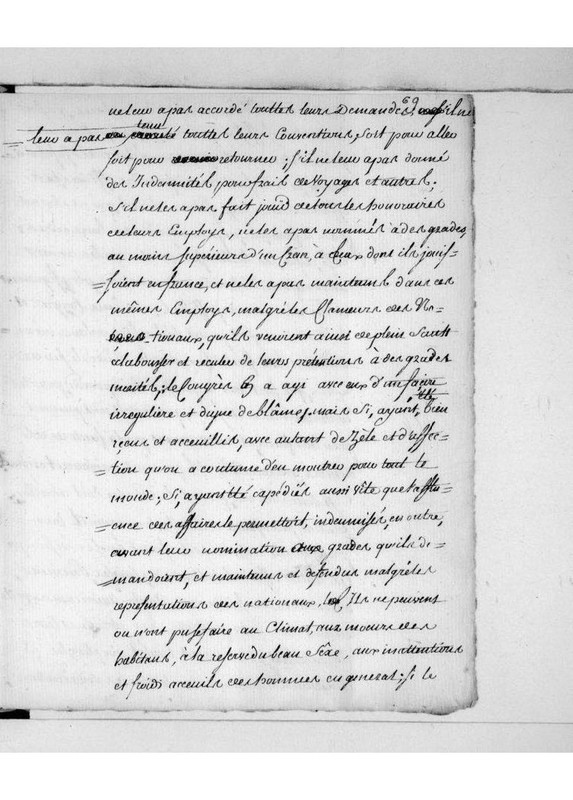 69
ne leur a pas accordé touttes leurs Demandes; s'il ne
leur a pas tenu touttes leurs Conventions, soit pour aller
soit pour retourner; s'il ne leur a pas donné
des Indemnités pour frais de Voyages et autres;
s'il ne les a pas fait jouir de tous les honoraires
de leurs Employs, ne les a pas nommés à des grades,
au moins supérieurs d'un cran, à ceux dont ils jouis-
=soient en france, et ne les a pas maintenus dans ces
mêmes Employs, malgré les Clameurs des Na-
=tionaux, qu'ils veniront ainsi de plein saut
éclabousser et reculer de leurs prétentions à des grades
mérités; le Congrès a agi avec eux d'un façon
irreguliere et digne de blâme; mais si, ayant été bien
reçus et acceuillis, avec autant de Zèle et d'affec-
=tion qu'on a coutume d'en montrer pour tout le
monde; si, ayant été expediés aussi vîte que l'afflu-
=ence des affaires le permettoit, indemnisés, en outre,
suivant leur nomination aux grades qu'ils de-
=mandoient, et maintenus et défendus malgré les
représentations des nationaux, Ils ne peuvent
ou n'ont pu se faire au Climat, aux moeurs des
habitans, à la reserve du beau Sèxe, aux inattentions
et froids acceuils des hommes en general; si le